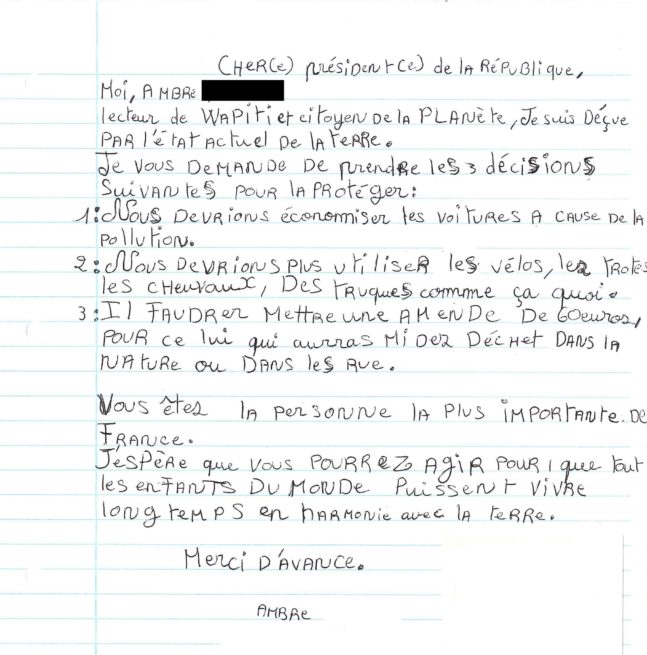 CHER(e) présidentce) de la République,
Moi, AMBRe
lecteur de WAPITI et citoyen de la PLANète, Je suis Déçue
PAR l'état actuel De la terre.
Je vous DeMANDe De prendre les 3 décisions
Suivantes pour la protéger:
1: Nous Devrions économiser les voitures A cause de la
pollution.
2: Nous Devrions plus utiliser les vélos, les trotes
les chevaux, Des truques comme ça quoi.
3: Il FAUDRER Mettre une AMeNDe De 60euros,
pour ce lui qui auras Mi Dez Déchet DANS la
NAture ou DANS les Rue.
Vous êtes la personne la plus IMPORTANTe De
FRANCe.
J'espère que vous pourrez Agir pour que tout
les enFANTS Du MONDe puissent vivre
longtemps en harmonie avec la terre.
Merci D'AVANCe.
AMBRe